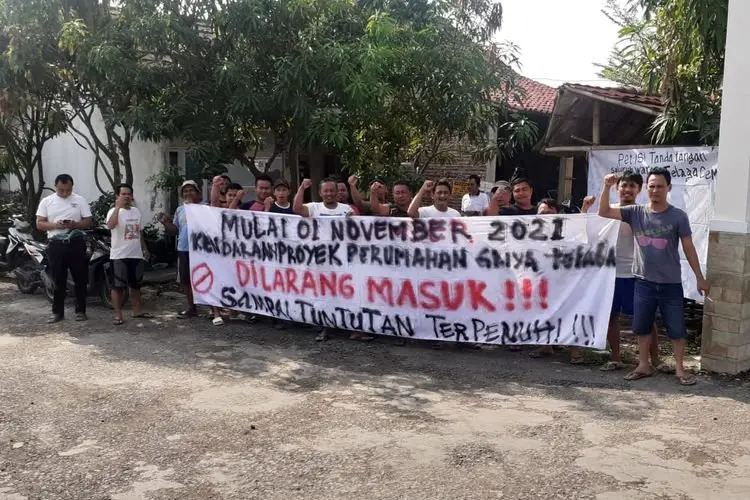 MULAI 01 NOVEMBER 2021
KENDARAAN PROYEK PERUMAHAN GRIYA
DILARANG MASUK!!!
SAMPAI TUNTUTAN TERPENUHI!!!
PETISI Tanda tangan